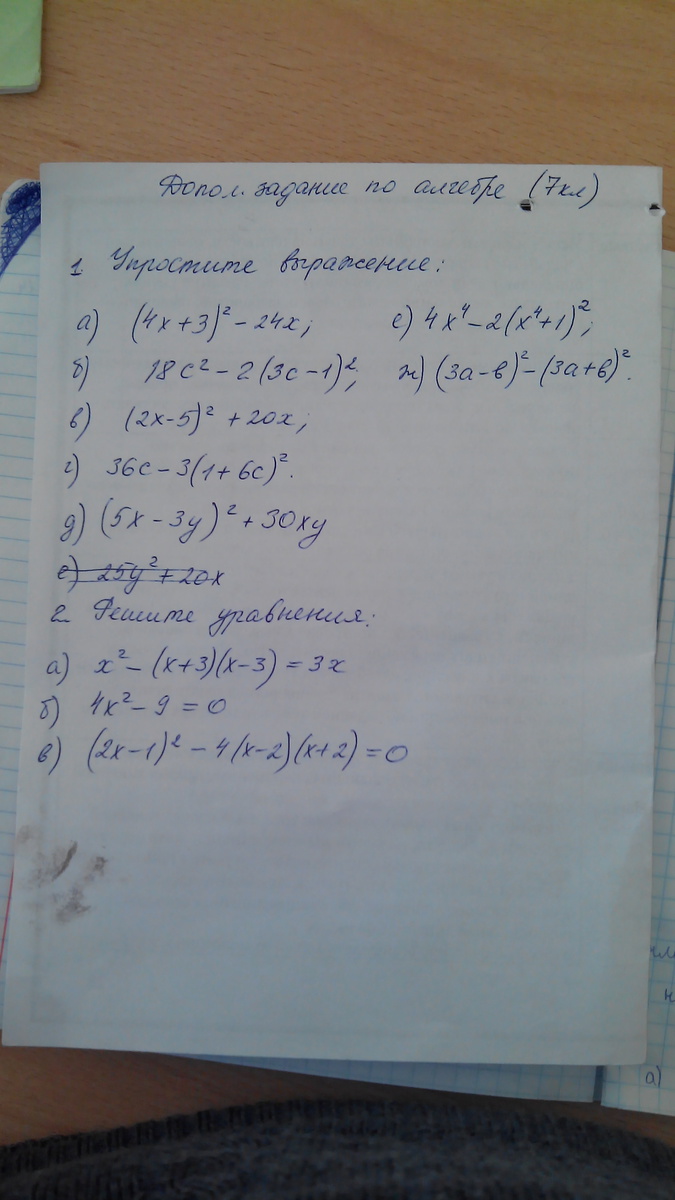 Допол. задание по алгебре (7кл)
1. Упростите выражение:
а) (4x+3)² - 24x; е) 4x⁴ - 2(x⁴+1)²;
б) 18c² - 2(3c-1)²; ж) (3a-b)² - (3a+b)².
в) (2x-5)² + 20x;
г) 36c - 3(1+6c)².
д) (5x - 3y)² + 30xy
е) 25y² + 20x
2. Решите уравнения:
а) x² - (x+3)(x-3) = 3x
б) 4x² - 9 = 0
в) (2x-1)² - 4(x-2)(x+2) = 0
а)